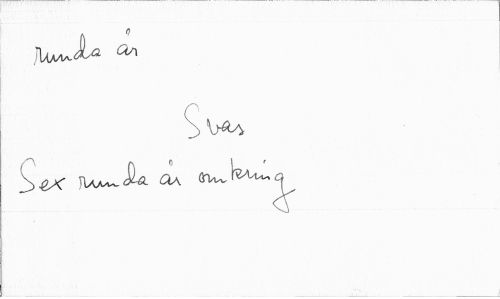 runda år
Svas
Sex runda år omkring